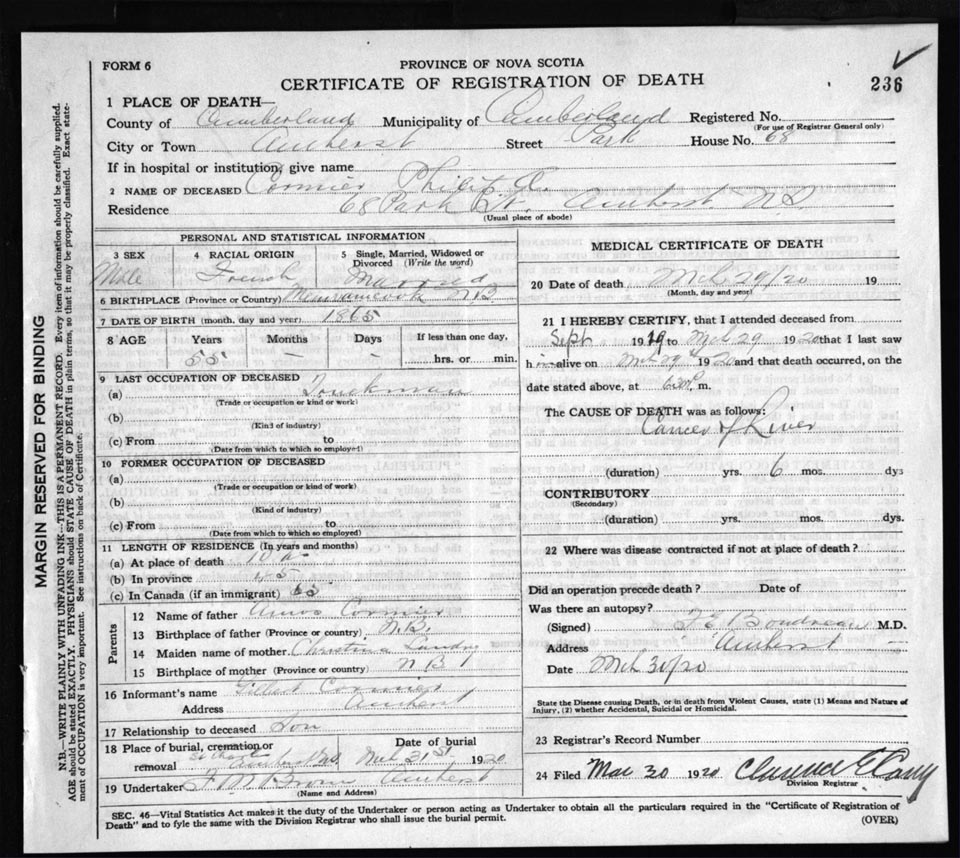 FORM 6
PROVINCE OF NOVA SCOTIA
CERTIFICATE OF REGISTRATION OF DEATH
236
1 PLACE OF DEATH—
County of Cumberland Municipality of Cumberland Registered No.
(For use of Registrar General only)
City or Town Amherst Street Park House No. 68
If in hospital or institution, give name
2 NAME OF DECEASED Cormier Philip
Residence 68 Park St. Amherst N.S.
(Usual place of abode)
MARGIN RESERVED FOR BINDING
N.B.—WRITE PLAINLY WITH UNFADING INK—THIS IS A PERMANENT RECORD. Every item of information should be carefully supplied.
AGE should be stated EXACTLY. PHYSICIANS should STATE CAUSE OF DEATH in plain terms, so that it may be properly classified. Exact state-
ment of OCCUPATION is very important. See instructions on back of Certificate.
PERSONAL AND STATISTICAL INFORMATION
3 SEX 4 RACIAL ORIGIN 5 Single, Married, Widowed or
Divorced (Write the word)
Male French Married
6 BIRTHPLACE (Province or Country) Memramcook N.B
7 DATE OF BIRTH (month, day and year) 1865
8 AGE Years Months Days If less than one day,
55 — — hrs. or min.
9 LAST OCCUPATION OF DECEASED
(a) Truckman
(Trade or occupation or kind or work)
(b)
(Kind of industry)
(c) From to
(Date from which to which so employed)
10 FORMER OCCUPATION OF DECEASED
(a)
(Trade or occupation or kind of work)
(b)
(Kind of industry)
(c) From to
(Date from which to which so employed)
11 LENGTH OF RESIDENCE (In years and months)
(a) At place of death
(b) In province
(c) In Canada (if an immigrant)
Parents
12 Name of father Amos Cormier
13 Birthplace of father (Province or country) N.B.
14 Maiden name of mother Christina Landry
15 Birthplace of mother (Province or country) N B
16 Informant's name Cormier
Address Amherst
17 Relationship to deceased Son
18 Place of burial, cremation or Date of burial
removal Amherst Mch 31st 1920
19 Undertaker Brown Amherst
(Name and Address)
MEDICAL CERTIFICATE OF DEATH
20 Date of death Mch 29/20 19
(Month, day and year)
21 I HEREBY CERTIFY, that I attended deceased from
Sept 1919 to Mch 29 1920 that I last saw
him alive on Mch 29 1920 and that death occurred, on the
date stated above, at m.
The CAUSE OF DEATH was as follows:
Cancer of Liver
(duration) yrs. 6 mos. dys
CONTRIBUTORY
(Secondary)
(duration) yrs. mos. dys.
22 Where was disease contracted if not at place of death?
Did an operation precede death? Date of
Was there an autopsy?
(Signed) F E Boudreau M.D.
Address Amherst
Date Mch 30/20
State the Disease causing Death, or in death from Violent Causes, state (1) Means and Nature of
Injury, (2) whether Accidental, Suicidal or Homicidal.
23 Registrar's Record Number
24 Filed Mar 30 1920 Clarence E Casey
Division Registrar
SEC. 46—Vital Statistics Act makes it the duty of the Undertaker or person acting as Undertaker to obtain all the particulars required in the "Certificate of Registration of
Death" and to fyle the same with the Division Registrar who shall issue the burial permit.
(OVER)